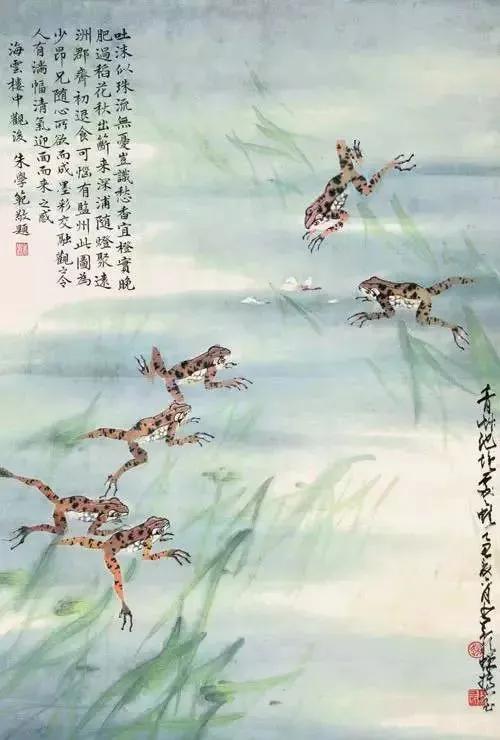 吐沫似珠流無憂豈識愁香宜橙實晚
肥過稻花秋出来深浦隨燈聚遠
洲郡齋初退食可有監州此圖為
少昂兄隨心所欲而成墨彩交融觀之令
人有滿幅清氣迎面而来之感
海雲樓中觀後 朱學範敬題
青草池